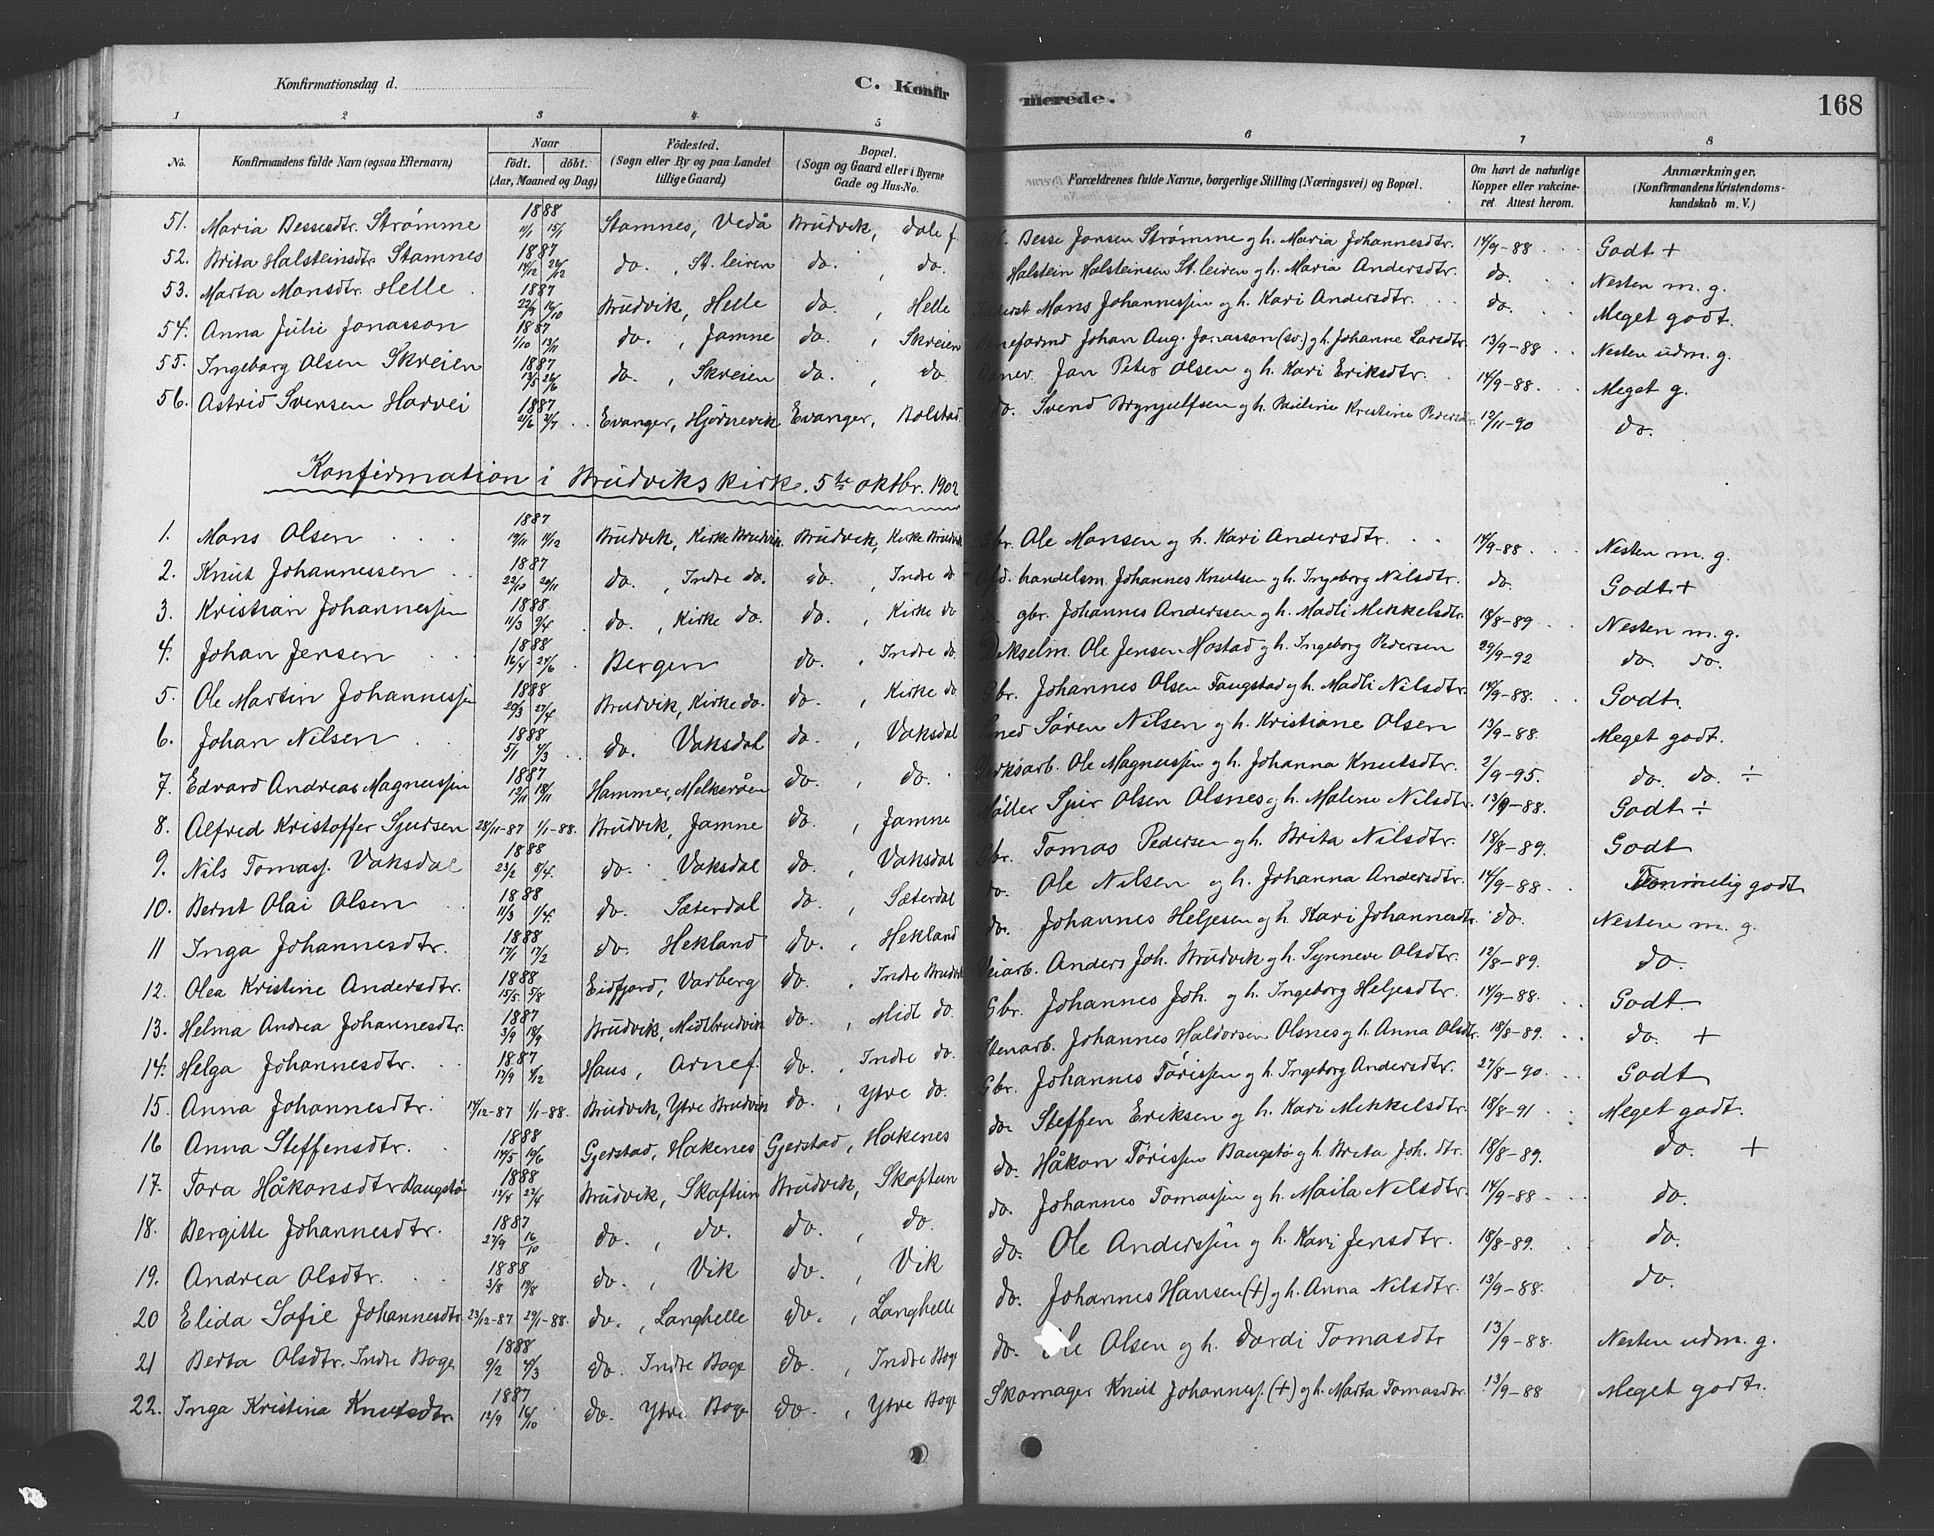 Konfirmationsdag d.
C. Konfir
merede.
168
1 2 3 4 5 6 7 8
No. | Konfirmandens fulde Navn (ogsaa Efternavn) | Naar födt. döbt. (Aar, Maaned og Dag) | Födested. (Sogn eller By og paa Landet tillige Gaard) | Bopæl. (Sogn og Gaard eller i Byerne Gade og Hus-No. | Forældrenes fulde Navne, borgerlige Stilling (Næringsvei) og Bopæl. | Om havt de naturlige Kopper eller vakcineret. Attest herom. | Anmærkninger, (Konfirmandens Kristendomskundskab m. V.)
51. Maria Bessesdtr. Strømme 1888 11/1 15/1 Stamnes, Vedå Brudvik, Dale f. Besse Jonsen Strømme og h. Maria Johannesdtr. 14/9-88 Godt +
52. Brita Halsteinsdtr. Stamnes 1887 14/12 26/12 do., St. leiren do., do. Halstein Halsteinsen St. leiren og h. Maria Andersdtr. do. Nesten m. g.
53. Marta Monsdtr. Helle 1887 22/9 16/10 Brudvik, Helle do., Helle Mons Johannessen og h. Kari Andersdtr. do. Meget godt.
54. Anna Julie Jonasson 1887 1/10 13/11 do., Jamne do., Skreien Johan Aug. Jonasson (sv.) og h. Johanne Larsdtr. 13/9-88 Nesten udm. g.
55. Ingeborg Olsen Skreien 1887 13/5 26/6 do., Skreien do., do. Jan Peter Olsen og h. Kari Eriksdtr. 14/9-88 Meget g.
56. Astrid Svensen Horvei 1887 21/6 3/7 Evanger, Hjørnevik Evanger, Bolstad. do. Svend Brynjulfsen og h. Pauline Kristine Pedersdtr. 12/11-90 do.
Konfirmation i Brudviks kirke. 5te oktbr. 1902
1. Mons Olsen 1887 19/11 11/12 Brudvik, Kirke Brudvik. Brudvik, Kirke Brudvik Gbr. Ole Monsen og h. Kari Andersdtr. 14/9-88 Nesten m. g.
2. Knut Johannessen 1887 22/10 20/11 do., Indre do. do., Indre do handelsm. Johannes Knutsen og h. Ingeborg Nilsdtr. do. Godt +
3. Kristian Johannessen 1888 11/3 9/4 do., Kirke do. do., Kirke do gbr. Johannes Anderssen og h. Madli Mikkelsdtr. 18/8-89 Nesten m. g.
4. Johan Jensen 1888 16/4 24/6 Bergen do., Indre do. Dikselm. Ole Jensen Hostad og h. Ingeborg Pedersen 29/9-92 do. do.
5. Ole Martin Johannessen 1888 20/3 27/4 Brudvik, Kirke do. do., Kirke do Gbr. Johannes Olsen Faugstad og h. Madli Nilsdtr. 14/9-88. Godt.
6. Johan Nilsen 1888 5/1 4/3 do. Vaksdal do., Vaksdal Søren Nilsen og h. Kristiane Olsen 13/9-88. Meget godt.
7. Edvard Andreas Magnussen 1887 12/11 18/11 Hammer, Melkeråen do., do. Verksarb. Ole Magnussen og h. Johanna Knutsdtr. 2/9-95. do. do. ÷
8. Alfred Kristoffer Sjursen 28/11-87 1/1-88. Brudvik, Jamne do., Jamne Møller Sjur Olsen Olsnes og h. Malene Nilsdtr. 13/9-88. Godt ÷
9. Nils Tomass. Vaksdal 1888 23/2 8/4. do. Vaksdal do., Vaksdal Gbr. Tomas Pedersen og h. Brita Nilsdtr. 18/8-89. Godt
10. Bernt Olai Olsen 1888 11/3 1/4. do. Sæterdal do., Sæterdal do. Ole Nilsen og h. Johanna Andersdtr. 14/9-88 Temmelig godt
11 Inga Johannesdtr. 1888 17/1 17/2 do. Hekland do., Hekland do. Johannes Heljesen og h. Kari Johannesdtr. do. Nesten m. g.
12. Olea Kristine Andersdtr. 1888 15/5 5/8 Eidfjord, Varberg do., Indre Brudvik Veiarb. Anders Joh. Brudvik og h. Synneve Olsdtr. 12/8-89. do.
13. Helma Andrea Johannesdtr. 1887 3/9 18/9 Brudvik, Midtbrudvik do., Midt do. Gbr. Johannes Joh. og h. Ingeborg Heljesdtr. 14/9-88. Godt
14. Helga Johannesdtr. 1887 17/9 4/12 Haus, Arnef. do., Indre do. Stenarb. Johannes Haldorsen Olsnes og h. Anna Olsdtr. 18/8-89. do. +
15. Anna Johannesdtr. 14/12-87 1/1-88. Brudvik, Ytre Brudvik do., Ytre do. Gbr. Johannes Tørissen og h. Ingeborg Andersdtr. 27/8-90. Godt
16 Anna Steffensdtr. 1888 14/5 19/6 Gjerstad, Hakenes Gjerstad, Hakenes do. Steffen Eriksen og h. Kari Mikkelsdtr. 18/8-91 Meget godt.
17. Tora Håkonsdtr Baugstø 1888 12/4 22/4 Brudvik, Skaftun Brudvik, Skaftun do. Håkon Tørissen Baugstø og h. Brita Joh. dtr. 18/8-89. do. +
18. Bergitte Johannesdtr. 1887 27/9 16/10 do., do. do., do. do. Johannes Tomassen og h. Maila Nilsdtr. 14/9-88 do.
19. Andrea Olsdtr. 1888 3/8 19/8 do., Vik do., Vik do. Ole Anderssen og h. Kari Jensdtr. 18/8-89. do.
20 Elida Sofie Johannesdtr. 23/12-87 29/1-88. do., Langhelle do., Langhelle do. Johannes Hansen (+) og h. Anna Nilsdtr. 13/9-88. do.
21 Berta Olsdtr. Indre Boge 1888 9/2 4/3 do. Indre Boge do., Indre Boge do. Ole Olsen og h. Dordi Tomasdtr 13/9-88. Nesten udm. g.
22. Inga Kristina Knutsdtr. 1887 12/9 16/10 do. Ytre Boge do., Ytre Boge Skomager Knut Johanness. (+) og h. Marta Tomasdtr. 13/9-88 Meget godt.